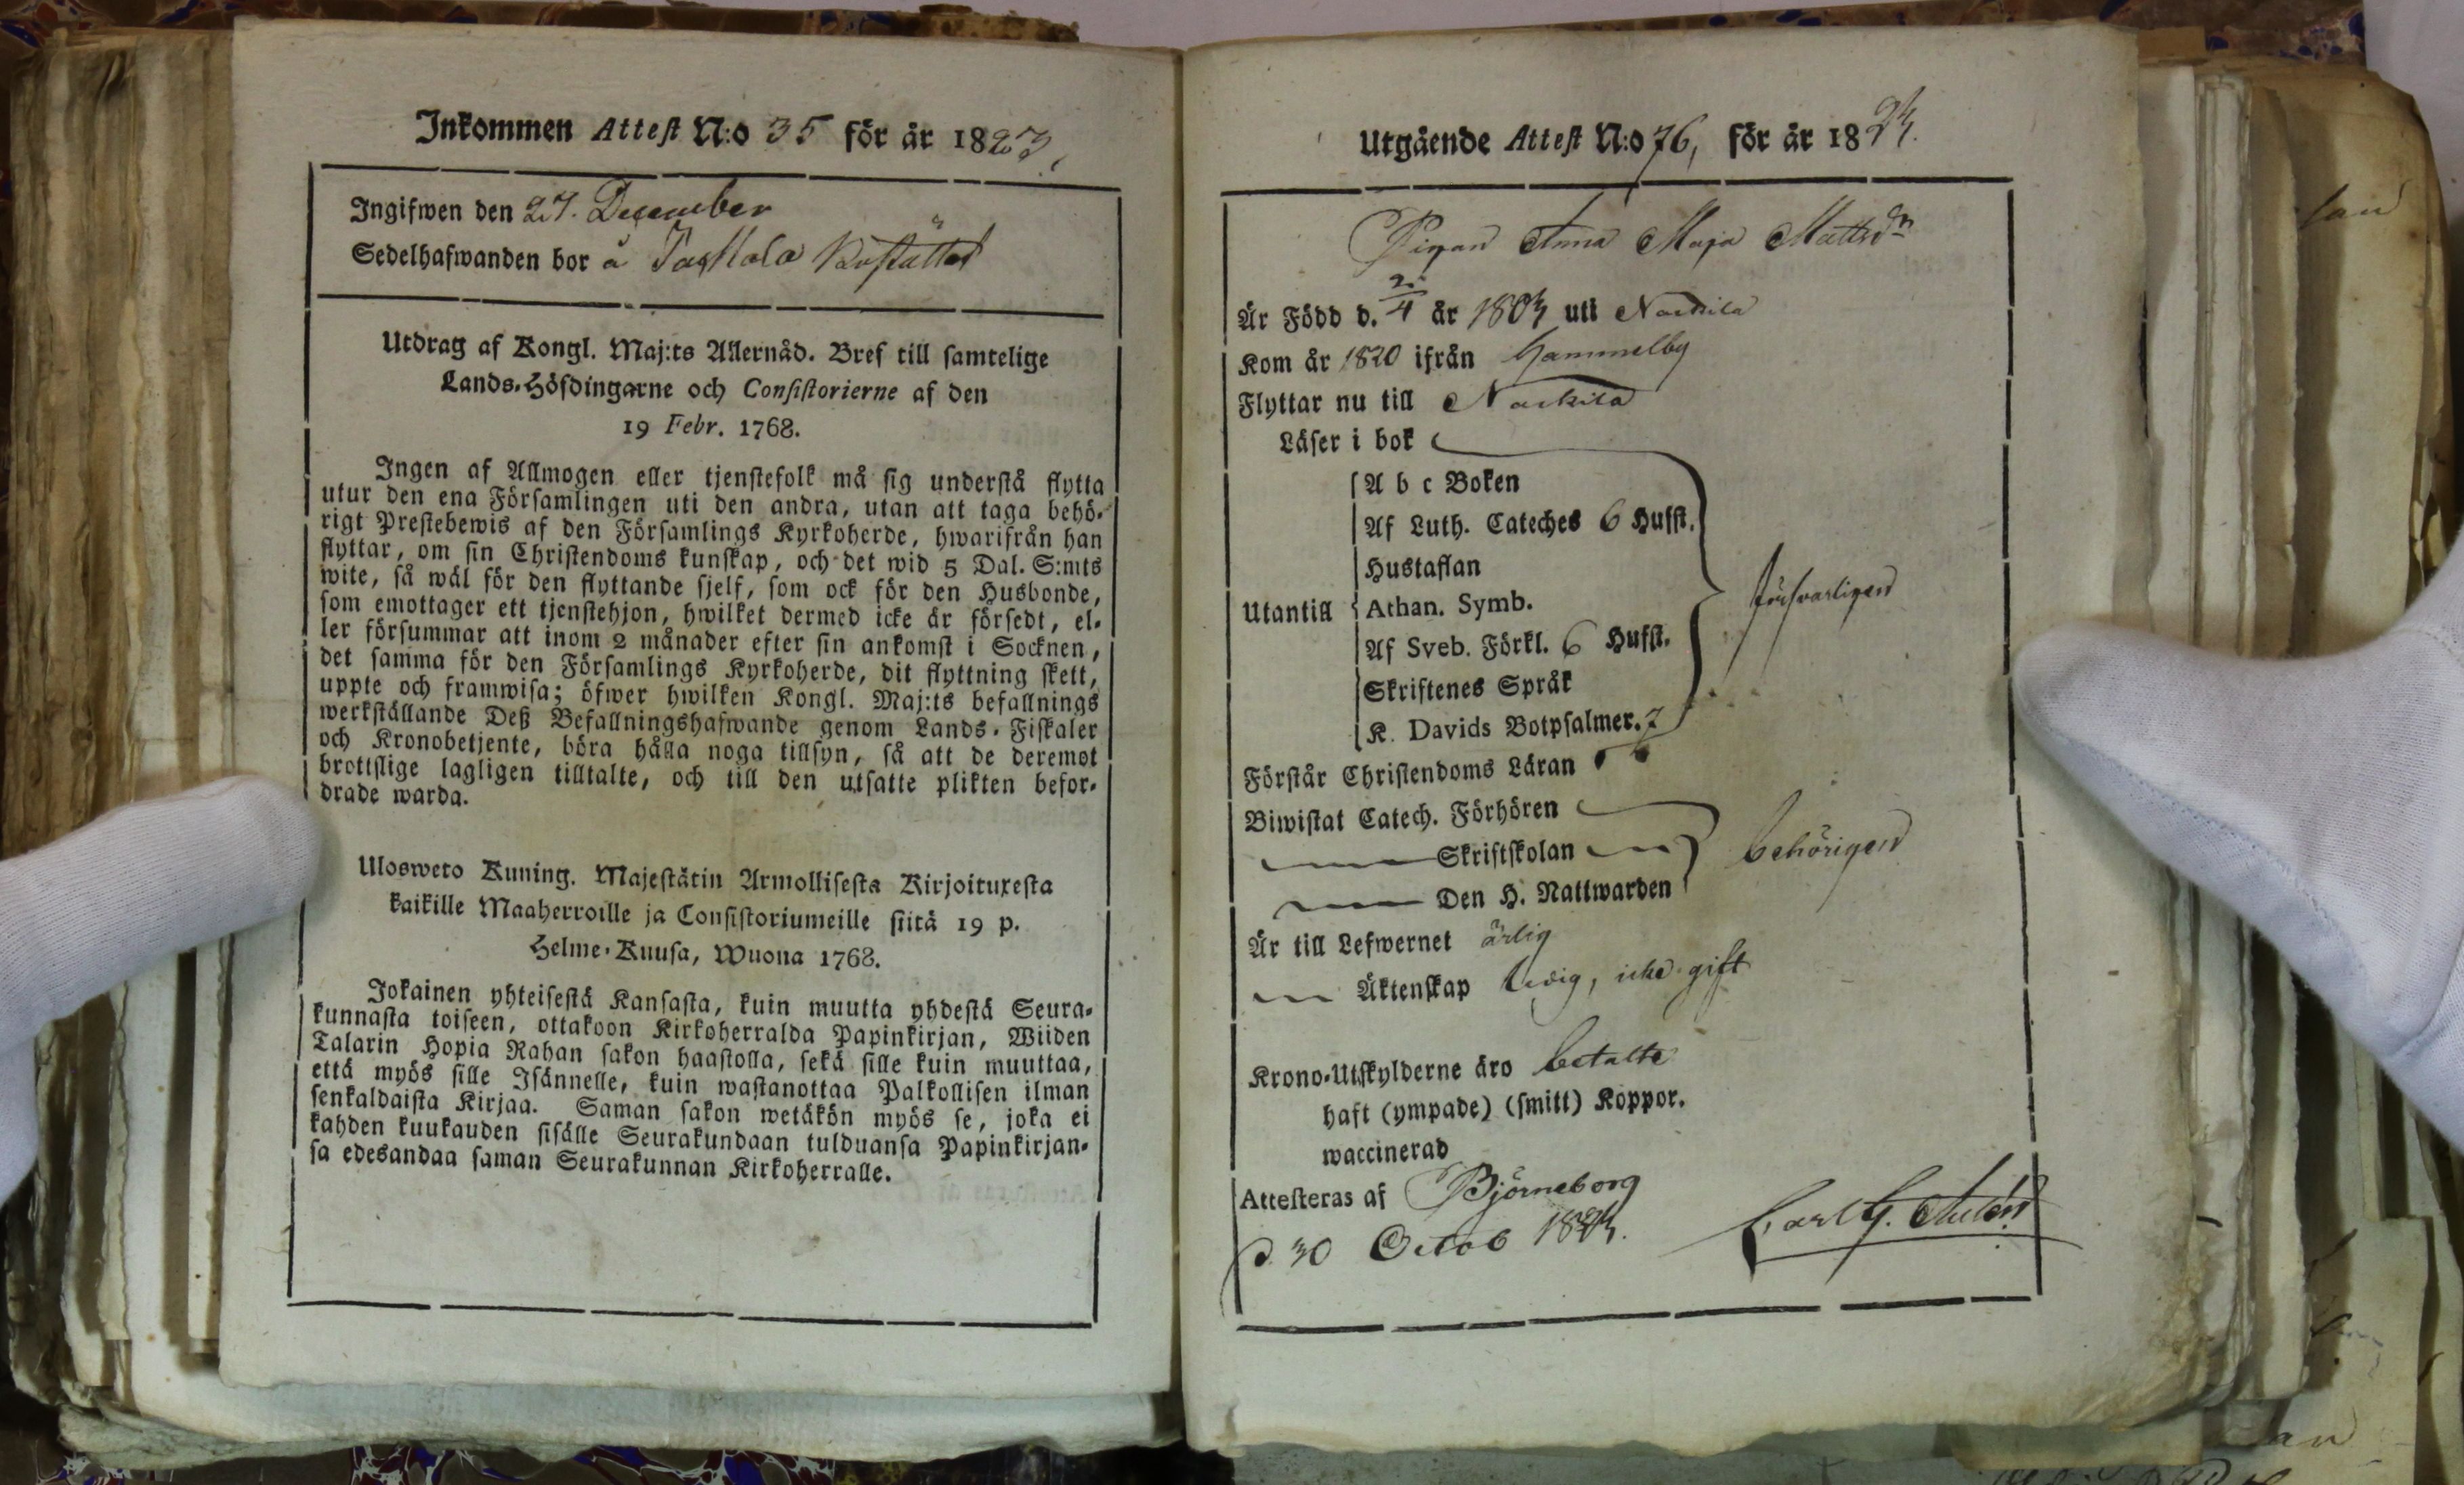 Inkommen Attest N:o 35 för år 1823.
Ingifwen den 27. December
Sedelhafwanden bor å
Utdrag af Kongl. Maj:ts Allernåd. Bref till samtelige
Lands-Höfdingarne och Consistorierne af den
19 Febr. 1768.
Ingen af Allmogen eller tjenstefolk må sig understå flytta
utur den ena Församlingen uti den andra, utan att taga behö-
rigt Prestebewis af den Församlings Kyrkoherde, hwarifrån han
flyttar, om sin Christendoms kunskap, och det wid 5 Dal. S:mts
wite, så wäl för den flyttande sjelf, som ock för den Husbonde,
som emottager ett tjenstehjon, hwilket dermed icke är försedt, el-
ler försummar att inom 2 månader efter sin ankomst i Socknen,
det samma för den Församlings Kyrkoherde, dit flyttning skett,
uppte och framwisa; öfwer hwilken Kongl. Maj:ts befallnings
werkställande Deß Befallningshafwande genom Lands-Fiskaler
och Kronobetjente, böra hålla noga tillsyn, så att de deremot
brottslige lagligen tilltalte, och till den utsatte plikten befor-
drade warda.
Ulosweto Kuning. Majestätin Armollisesta Kirjoituxesta
kaikille Maaherroille ja Consistoriumeille siitä 19 p.
Helme-Kuusa, Wuona 1768.
Jokainen yhteisestä Kansasta, kuin muutta yhdestä Seura-
kunnasta toiseen, ottakoon Kirkoherralda Papinkirjan, Wiiden
Talarin Hopia Rahan sakon haastolla, sekä sille kuin muuttaa,
että myös sille Isännelle, kuin wastanottaa Palkollisen ilman
senkaldaista Kirjaa. Saman sakon wetäkön myös se, joka ei
kahden kuukauden sisälle Seurakundaan tulduansa Papinkirjan-
sa edesandaa saman Seurakunnan Kirkoherralle.
Utgående Attest N:o 76, för år 1823.
Pigan Anna Maja Mattsdr
Är Född d. 2/4 år 1803 uti Nackila
Kom år 1820 ifrån Hammelby
Flyttar nu till Nackila
Läser i bok
A b c Boken
Af Luth. Cateches 6 Hufst.
Hustaflan
Utantill Athan. Symb. försvarligen
Af Sveb. Förkl. 6 Hufst.
Skriftenes Språk
K. Davids Botpsalmer. 7
Förstår Christendoms Läran
Biwistat Catech. Förhören
Skriftskolan behörigen
Den H. Nattwarden
Är till Lefwernet ärlig
Äktenskap ledig, icke gift
Krono-Utskylderne äro betalte
haft (ympade) (smitt) Koppor.
waccinerad
Attesteras af Björneborg
d. 30 Octob 1823. Carl G.